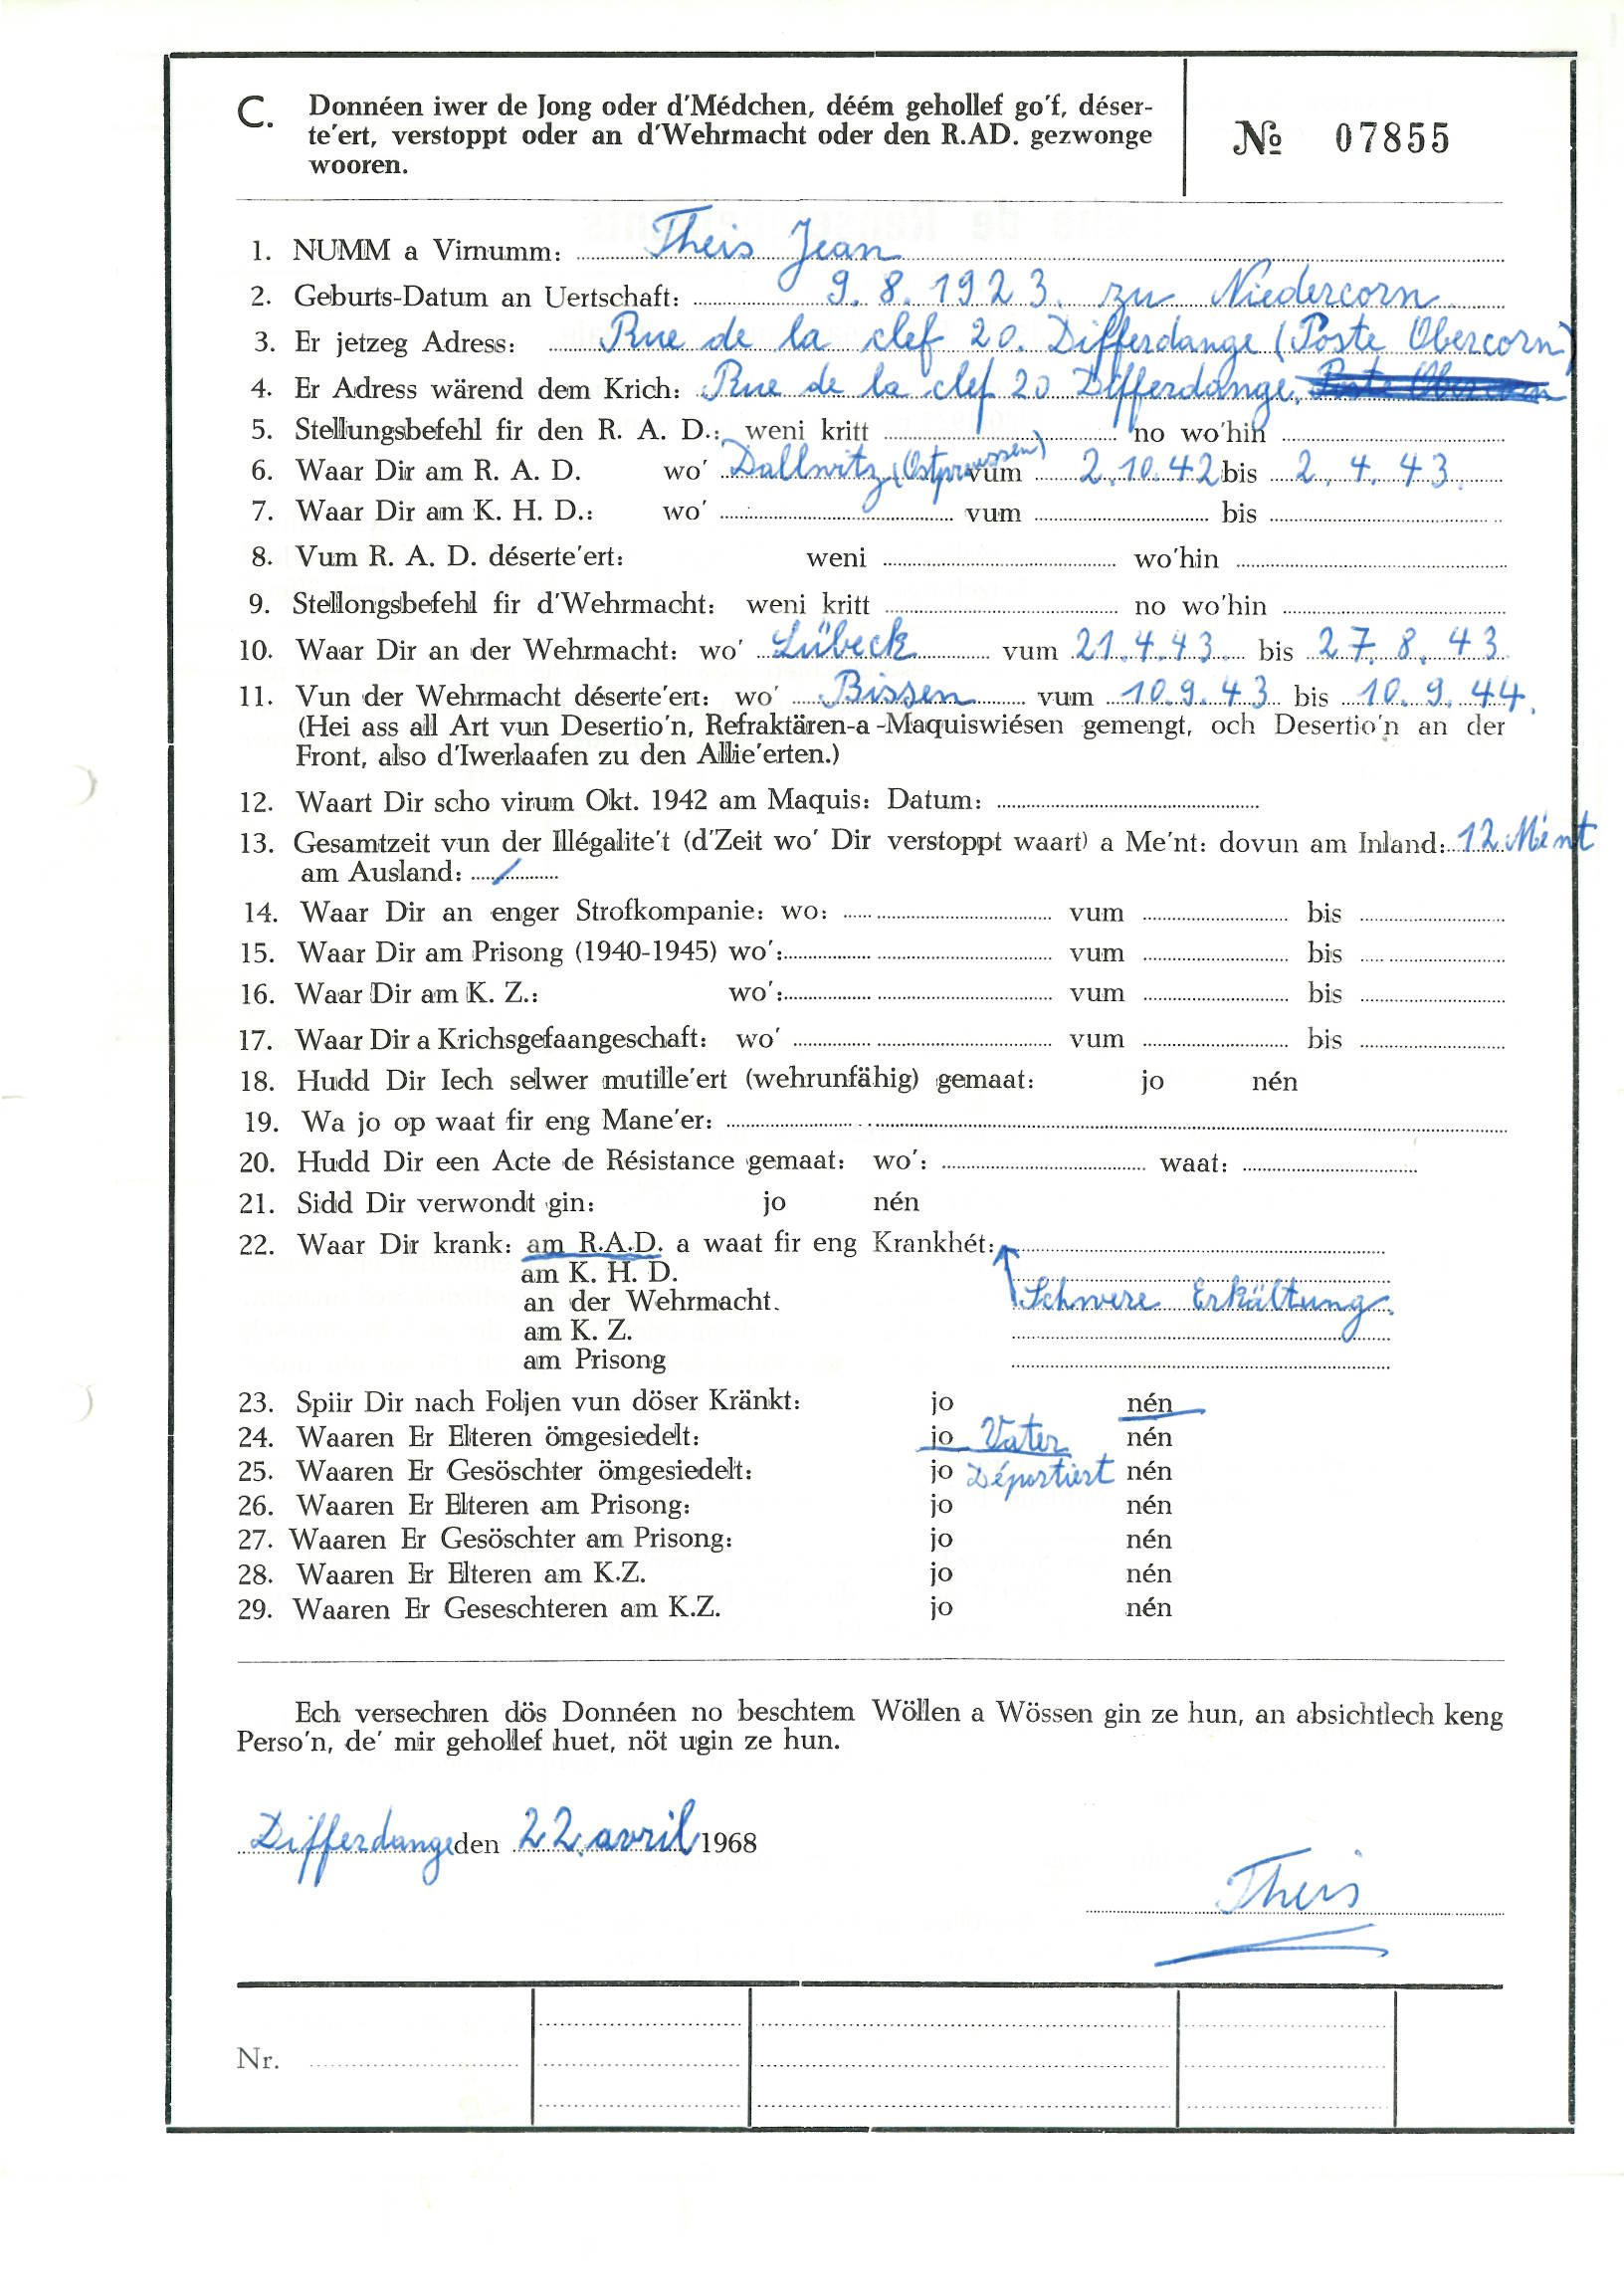 C. Donnéen iwer de Jong oder d'Médchen, déém gehollef go'f, déser-
te'ert, verstoppt oder an d'Wehrmacht oder den R.AD. gezwonge
wooren.
№ 07855
1. NUMM a Virnumm: Theis Jean
2. Geburts-Datum an Uertschaft: 9.8.1923. zu Niedercorn
3. Er jetzeg Adress: Rue de la clef 20. Differdange (Poste Obercorn)
4. Er Adress wärend dem Krich: Rue de la clef 20 Differdange, Poste Obercorn
5. Stellungsbefehl fir den R. A. D.: weni kritt no wo'hin
6. Waar Dir am R. A. D. wo' Dallwitz (Ostpreussen) vum 2.10.42 bis 2.4.43.
7. Waar Dir am K. H. D.: wo' vum bis
8. Vum R. A. D. déserte'ert: weni wo'hin
9. Stellongsbefehl fir d'Wehrmacht: weni kritt no wo'hin
10. Waar Dir an der Wehrmacht: wo' Lübeck vum 21.4.43 bis 27.8.43
11. Vun der Wehrmacht déserte'ert: wo' Bissen vum 10.9.43 bis 10.9.44.
(Hei ass all Art vun Desertio'n, Refraktären-a-Maquiswiésen gemengt, och Desertio'n an der
Front, also d'Iwerlaafen zu den Allie'erten.)
12. Waart Dir scho virum Okt. 1942 am Maquis: Datum:
13. Gesamtzeit vun der Illégalite't (d'Zeit wo' Dir verstoppt waart) a Me'nt: dovun am Inland: 12 Mént
am Ausland: /
14. Waar Dir an enger Strofkompanie: wo: vum bis
15. Waar Dir am Prisong (1940-1945) wo': vum bis
16. Waar Dir am K. Z.: wo': vum bis
17. Waar Dir a Krichsgefaangeschaft: wo' vum bis
18. Hudd Dir Iech selwer mutille'ert (wehrunfähig) gemaat: jo nén
19. Wa jo op waat fir eng Mane'er:
20. Hudd Dir een Acte de Résistance gemaat: wo': waat:
21. Sidd Dir verwondt gin: jo nén
22. Waar Dir krank: am R.A.D. a waat fir eng Krankhét:
am K. H. D.
an der Wehrmacht. Schwere Erkältung.
am K. Z.
am Prisong
23. Spiir Dir nach Foljen vun döser Kränkt: jo nén
24. Waaren Er Elteren ömgesiedelt: jo Vater nén
25. Waaren Er Gesöschter ömgesiedelt: jo Déportiert nén
26. Waaren Er Elteren am Prisong: jo nén
27. Waaren Er Gesöschter am Prisong: jo nén
28. Waaren Er Elteren am K.Z. jo nén
29. Waaren Er Geseschteren am K.Z. jo nén
Ech versechren dös Donnéen no beschtem Wöllen a Wössen gin ze hun, an absichtlech keng
Perso'n, de' mir gehollef huet, nöt ugin ze hun.
Differdange den 22. avril 1968
Theis
Nr.